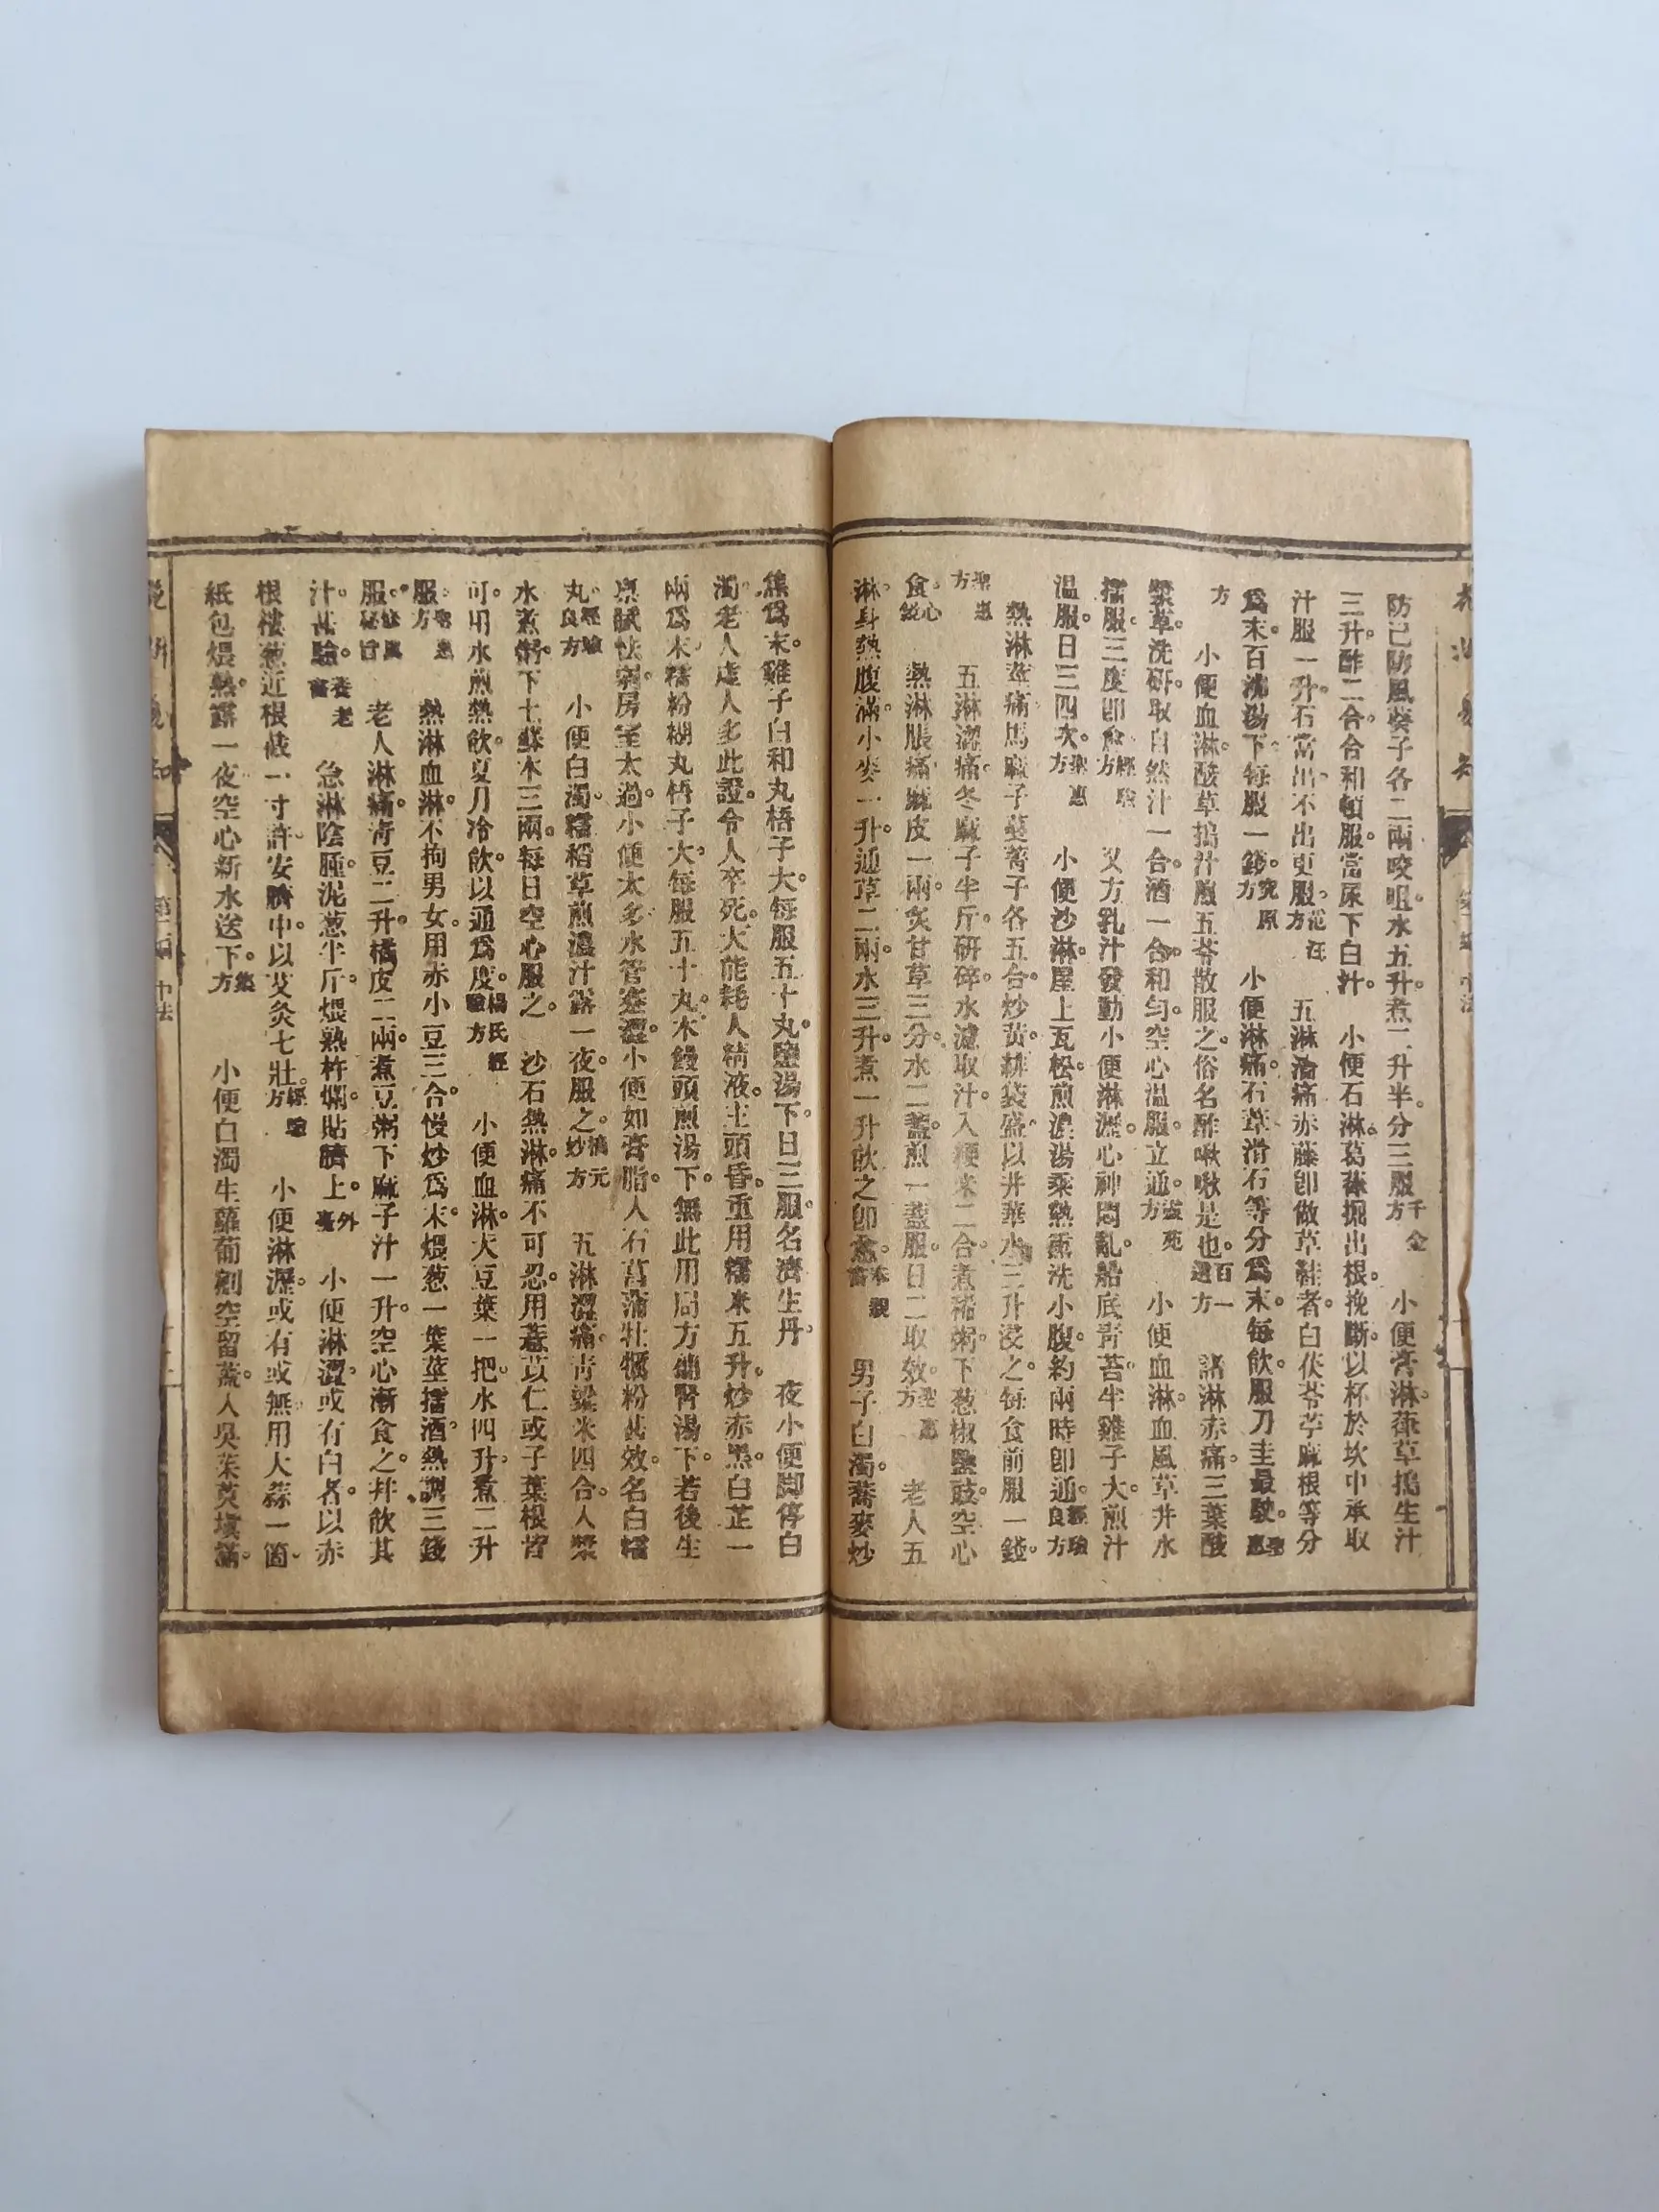 防己防風葵子各二兩㕮咀水五升煮二升半。分三服千金方 小便膏淋。葎草搗生汁
三升酢二合。合和頓服。當尿下白汁。 小便石淋。葛藤掘出根。挽斷。以杯於坎中承取
汁服一升。石當出。不出更服。范汪方 五淋澁痛赤藤卽做草鞋者。白茯苓苧麻根等分
爲末。百沸湯下。每服一錢。究原方 小便淋痛。石韋滑石等分爲末。每飲服刀圭最駛。聖惠
方 小便血淋。酸草搗汁煎五苓散服之。俗名酢啾啾是也。百一選方 諸淋赤痛。三葉酸
漿草洗研。取自然汁一合。酒一合。和勻。空心溫服。立通。 小便血淋。血風草井水
擂服。三度卽愈。經驗方 又方乳汁發動小便淋瀝。心神悶亂。船底靑苔半雞子大。煎汁
溫服。日三四次。聖惠方 小便沙淋。屋上瓦松。煎濃湯乘熱熏洗小腹。約兩時卽通。經驗良方
熱淋莖痛馬藺子蔓菁子各五合。炒黃耕袋盛。以井華水三升浸之。每食前服一錢。
聖惠方 五淋澀痛。冬麻子半斤。研碎。水濾取汁。入粳米二合。煮稀粥。下葱椒鹽豉。空心
食。心鏡 熱淋脹痛。麻皮一兩。炙甘草三分。水二盞。煎一盞服。日二。取效。聖惠方 老人五
淋。身熱腹滿。小麥一升。通草二兩。水三升。煮一升飲之卽愈。奉親書 男子白濁。蕎麥炒
焦爲末。雞子白和丸梧子大。每服五十丸。鹽湯下。日三服。名濟生丹。 夜小便脚停白
濁。老人虛人多此證。令人卒死。大能耗人精液。主頭昏重。用糯米五升。炒赤黑。白芷一
兩爲末。糯粉糊丸梧子大。每服五十丸。木饅頭煎湯下。無此用局方補腎湯下。若後生
稟賦怯弱。房室太過。小便太多。水管塞澀。小便如膏脂。人石菖蒲牡蠣粉甚效。名白糯
丸。經驗良方 小便白濁。糯稻草煎濃汁露一夜。服之。摘元妙方 五淋澀痛。靑粱米四合。人漿
水煮粥。下土蘇末三兩。每日空心服之。 沙石熱淋。痛不可忍。用薏苡仁或子葉根皆
可。用水煎熱飲。夏月冷飲。以通爲度。楊氏經驗方 小便血淋。大豆葉一把。水四升。煮二升
服。聖惠方 熱淋血淋。不拘男女。用赤小豆三合。慢炒爲末。煨葱一葉莖擂酒。熱調三錢
服。修眞秘旨 老人淋痛。靑豆二升。橘皮二兩。煮豆粥。下麻子汁一升。空心漸食之。幷飲其
汁。甚驗。養老書 急淋陰腫。泥葱半斤。煨熟杵爛。貼臍上。外臺 小便淋澀。或有白者。以赤
根樓葱近根截一寸許。安臍中。以艾灸七壯。經驗方 小便淋瀝。或有或無。用大蒜一箇。
紙包煨熟。露一夜。空心新水送下。 小便白濁。生蘿蔔剜空留蓋。人吳茱萸塡滿。